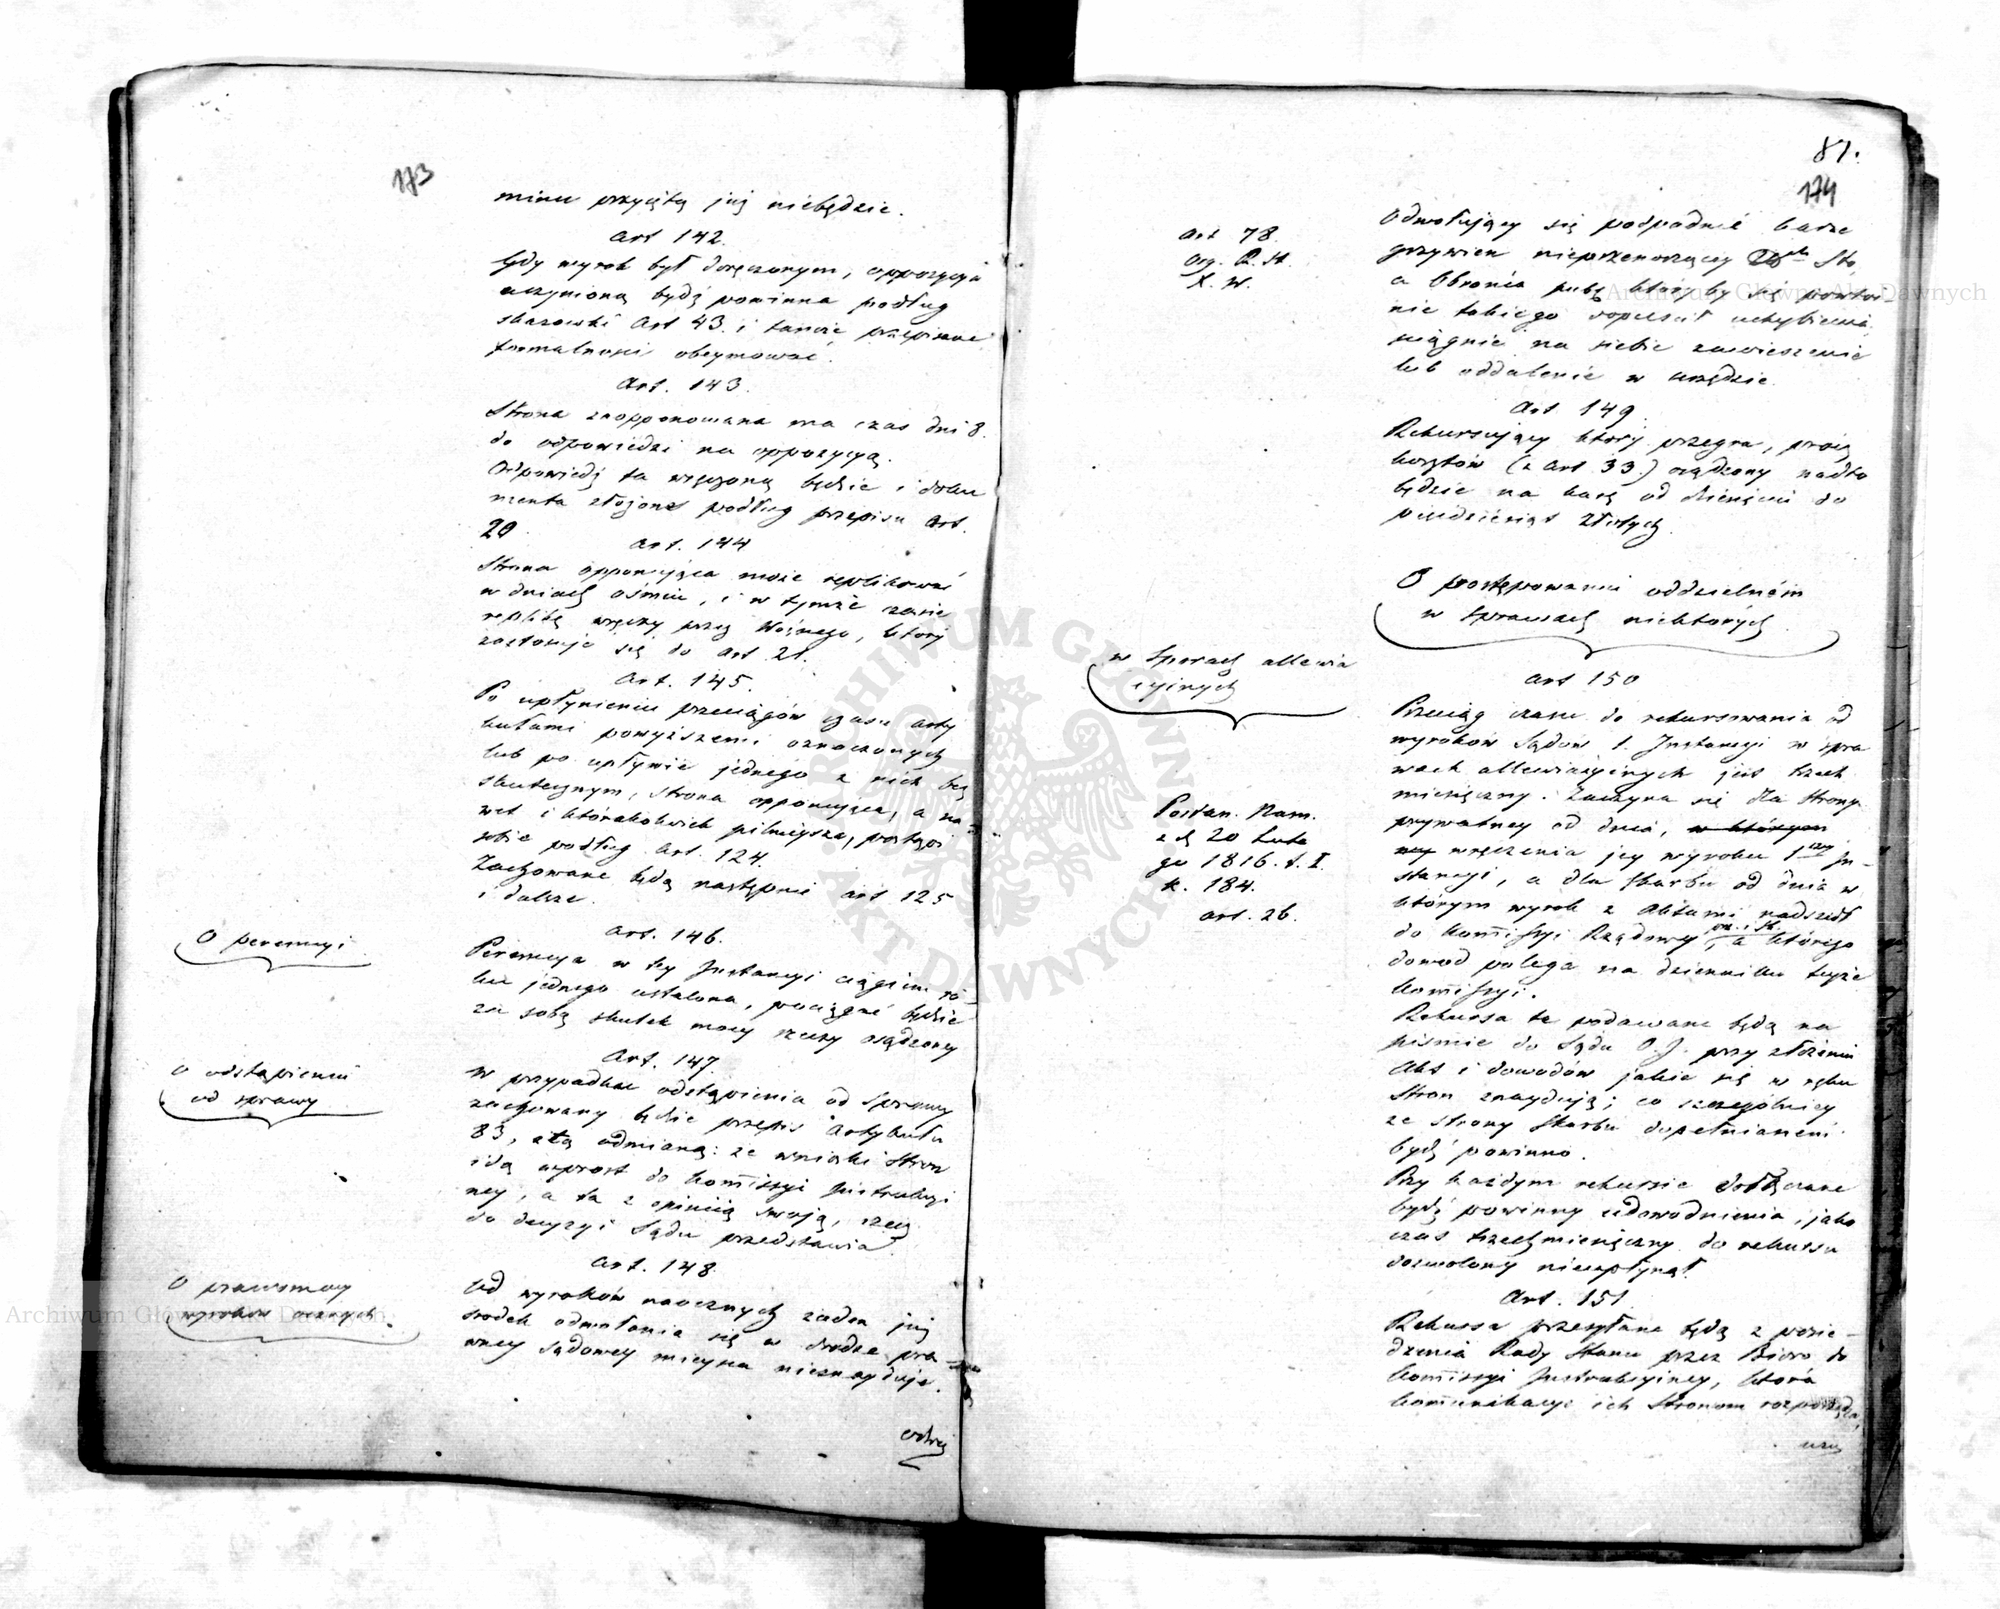 173
minu przyiętą już niebędzie.
Art 142.
Gdy wyrok był doręczonym, oppozycya
uczynioną bydź powinna podług
skazówki Art 43. i tamże przepisane
formalności obeymować.
Art. 143.
Strona zaopponowana ma czas dni 8.
do odpowiedzi na oppozycyą.
Odpowiedź ta wręczoną będzie i doku
menta złożone podług przepisu Art.
20.
Art. 144
Strona opponująca może replikować
w dniach ośmiu, i w tymże czasie
replikę wręczy przez Woźnego, który
zastosuje się do Art 21.
Art. 145.
Po upłynieniu przeciągów czasu arty
kułami powyższemi oznaczonych
lub po upłynie jednego z nich bez
skutecznym, strona opponująca, a na
wet i którakolwiek pilnieysza, postąpi
sobie podług Art. 124.
Zachowane będą następnie Art 125
i dalsze.
O perempcyi
Art. 146.
Perempcya w tey Instancyi ciągiem ro
ku jednego ustalona, pociągnie będzie
za sobą skutek mocy rzeczy osądzoney
O odstąpieniu
od sprawy
Art. 147.
W przypadku odstąpienia od Sprawy
zachowany będzie przepis Artykułu
83, z tą odmianą: że wnioski Stron
idą wprost do Kommissyi Instrukcyi
ney, a ta z opinią swoją, rzecz
do decyzyi Sądu przedstawia.
O prawomocy
wyroków ocznych.
Art. 148.
Od wyroków naocznych żaden już
środek odwołania się w drodze pra
wney sądowey mieysca nieznayduje.
odwo
81.
174
Art 78.
Org. R. St.
X. W.
odwołujący się podpadnie karze
grzywien nieprzenoszącey Sto,
a Obrońca który by się powtor
nie takiego dopuścił uchybienia
ściągnie na siebie zawieszenie
lub oddalenie w urzędzie.
Art 149.
Rekursujący który przegra, prócz
kosztów (z Art. 33.) osądzony nadto
będzie na karę od dziesięciu do
pięcdziesiąt złotych.
O postępowaniu oddzielném
w Sprawach niektórych.
w Sporach allewia
cyjnych
Art 150
Przeciąg czasu do rekursowania od
wyroków Sądów 1. Instancyi w spra
wach allewiacyjnych jest trzech
miesięczny. Zaczyna się dla Strony
prywatney od dnia, w którym
wręczenia jey wyroku 1szey In
stancyi, a dla Skarbu od dnia w
którym wyrok z Aktami nadszedł
do Kommissyi Rządowey prz. i Sk., a którego
dowod polega na dzienniku teyże
Kommissyi.
Postan. Nam.
z d. 20 Lute
go 1816. t. I.
k. 184.
art. 26.
Rekursa te podawane będą na
piśmie do Sądu O. J. przy złożeniu
Akt i dowodów jakie się w ręku
Stron znaydują; co szczególniey
ze strony Skarbu dopełnianem
bydź powinno.
Przy każdym rekursie dołączane
bydź powinny udowodnienia, jako
czas trzechmiesięczny do rekursu
dozwolony nieupłynął.
Art. 151
Rekursa przesyłane będą z posie-
dzenia Rady Stanu przez Biuro do
Kommissyi Instrukcyiney, która
kommunikacye ich Stronom rozporządza,
Archiwum Główne Akt Dawnych
Archiwum Główne Akt Dawnych
ARCHIWUM GŁÓWNE AKT DAWNYCH